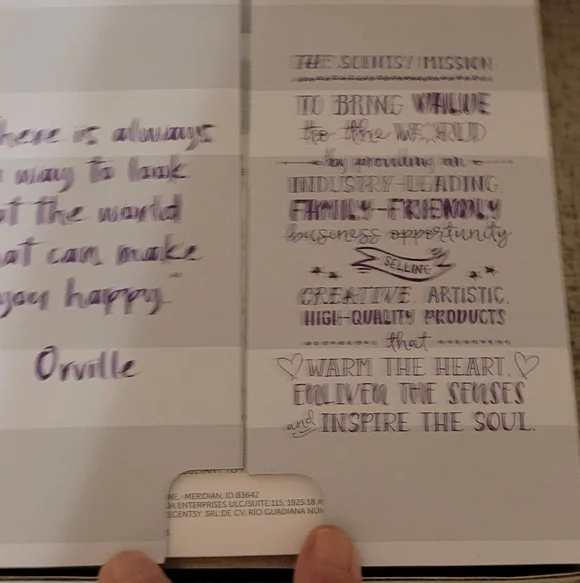 here is always
way to look
t the world
at can make
you happy."
Orville
THE SCENTSY MISSION
TO BRING VALUE
to the WORLD
by providing an
INDUSTRY-LEADING,
FAMILY-FRIENDLY
business opportunity
SELLING
CREATIVE, ARTISTIC,
HIGH-QUALITY PRODUCTS
that
WARM THE HEART,
ENLIVEN THE SENSES
and INSPIRE THE SOUL.
NE, MERIDIAN, ID 83642
ENTERPRISES ULC/SUITE 115, 1925 18 A
SCENTSY SRL DE CV: RIO GUADIANA NUM